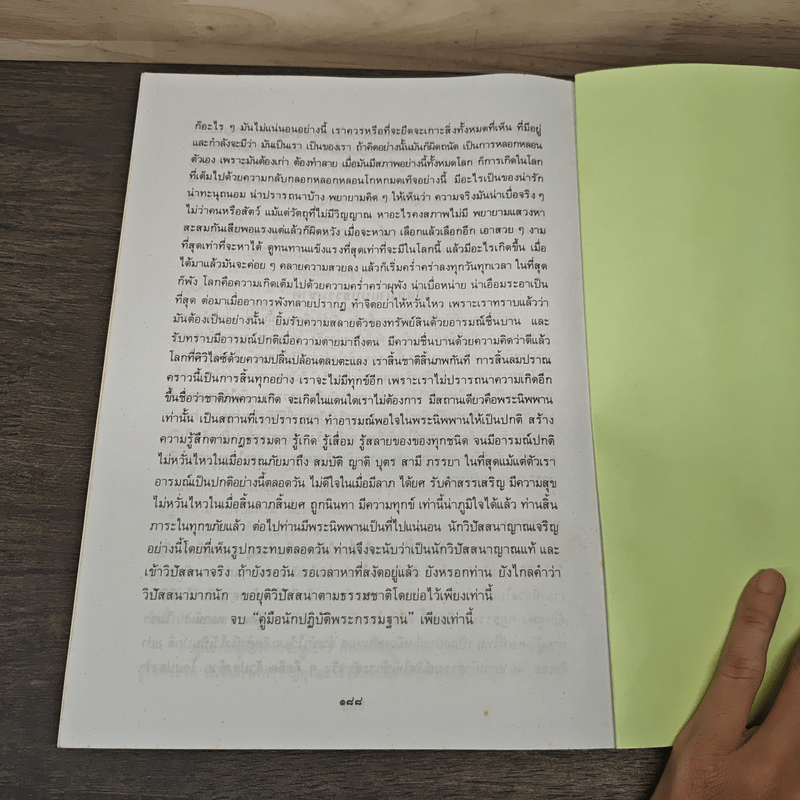 ก็อะไร ๆ มันไม่แน่นอนอย่างนี้ เราควรหรือที่จะยึดจะเกาะสิ่งทั้งหมดที่เห็น ที่มีอยู่
และกำลังจะมีว่า มันเป็นเรา เป็นของเรา ถ้าคิดอย่างนั้นมันก็ผิดถนัด เป็นการหลอกหลอน
ตัวเอง เพราะมันต้องเก่า ต้องทำลาย เมื่อมันมีสภาพอย่างนี้ทั้งหมดโลก ก็การเกิดในโลก
ที่เต็มไปด้วยความกลับกลอกหลอกหลอนโกหกมดเท็จอย่างนี้ มีอะไรเป็นของน่ารัก
น่าทะนุถนอม น่าปรารถนาบ้าง พยายามคิด ๆ ให้เห็นว่า ความจริงมันน่าเบื่อจริง ๆ
ไม่ว่าคนหรือสัตว์ แม้แต่วัตถุที่ไม่มีวิญญาณ หาอะไรคงสภาพไม่มี พยายามแสวงหา
สะสมกันเสียพอแรงแต่แล้วก็ผิดหวัง เมื่อจะหามา เลือกแล้วเลือกอีก เอาสวย ๆ งาม
ที่สุดเท่าที่จะหาได้ ดูทนทานแข็งแรงที่สุดเท่าที่จะมีในโลกนี้ แล้วมีอะไรเกิดขึ้น เมื่อ
ได้มาแล้วมันจะค่อย ๆ คลายความสวยลง แล้วก็เริ่มคร่ำคร่าลงทุกวันทุกเวลา ในที่สุด
ก็พัง โลกคือความเกิดเต็มไปด้วยความคร่ำคร่าผุพัง น่าเบื่อหน่าย น่าเอือมระอาเป็น
ที่สุด ต่อมาเมื่ออาการพังทลายปรากฏ ทำจิตอย่าให้หวั่นไหว เพราะเราทราบแล้วว่า
มันต้องเป็นอย่างนั้น ยิ้มรับความสลายตัวของทรัพย์สินด้วยอารมณ์ชื่นบาน และ
รับทราบมีอารมณ์ปกติเมื่อความตายมาถึงตน มีความชื่นบานด้วยความคิดว่าดีแล้ว
โลกที่ศิวิไลซ์ด้วยความปลิ้นปล้อนตลบตะแลง เราสิ้นชาติสิ้นภพกันที การสิ้นลมปราณ
คราวนี้เป็นการสิ้นทุกอย่าง เราจะไม่มีทุกข์อีก เพราะเราไม่ปรารถนาความเกิดอีก
ขึ้นชื่อว่าชาติภพความเกิด จะเกิดในแดนใดเราไม่ต้องการ มีสถานเดียวคือพระนิพพาน
เท่านั้น เป็นสถานที่เราปรารถนา ทำอารมณ์พอใจในพระนิพพานให้เป็นปกติ สร้าง
ความรู้สึกตามกฎธรรมดา รู้เกิด รู้เสื่อม รู้สลายของของทุกชนิด จนมีอารมณ์ปกติ
ไม่หวั่นไหวในเมื่อมรณภัยมาถึง สมบัติ ญาติ บุตร สามี ภรรยา ในที่สุดแม้แต่ตัวเรา
อารมณ์เป็นปกติอย่างนี้ตลอดวัน ไม่ดีใจในเมื่อมีลาภ ได้ยศ รับคำสรรเสริญ มีความสุข
ไม่หวั่นไหวในเมื่อสิ้นลาภสิ้นยศ ถูกนินทา มีความทุกข์ เท่านี้น่าภูมิใจได้แล้ว ท่านสิ้น
ภาระในทุกขภัยแล้ว ต่อไปท่านมีพระนิพพานเป็นที่ไปแน่นอน นักวิปัสสนาญาณเจริญ
อย่างนี้โดยที่เห็นรูปกระทบตลอดวัน ท่านจึงจะนับว่าเป็นนักวิปัสสนาญาณแท้ และ
เข้าวิปัสสนาจริง ถ้ายังรอวัน รอเวลาหาที่สงัดอยู่แล้ว ยังหรอกท่าน ยังไกลคำว่า
วิปัสสนามากนัก ขอยุติวิปัสสนาตามธรรมชาติโดยย่อไว้เพียงเท่านี้
จบ “คู่มือนักปฏิบัติพระกรรมฐาน” เพียงเท่านี้
๑๘๘